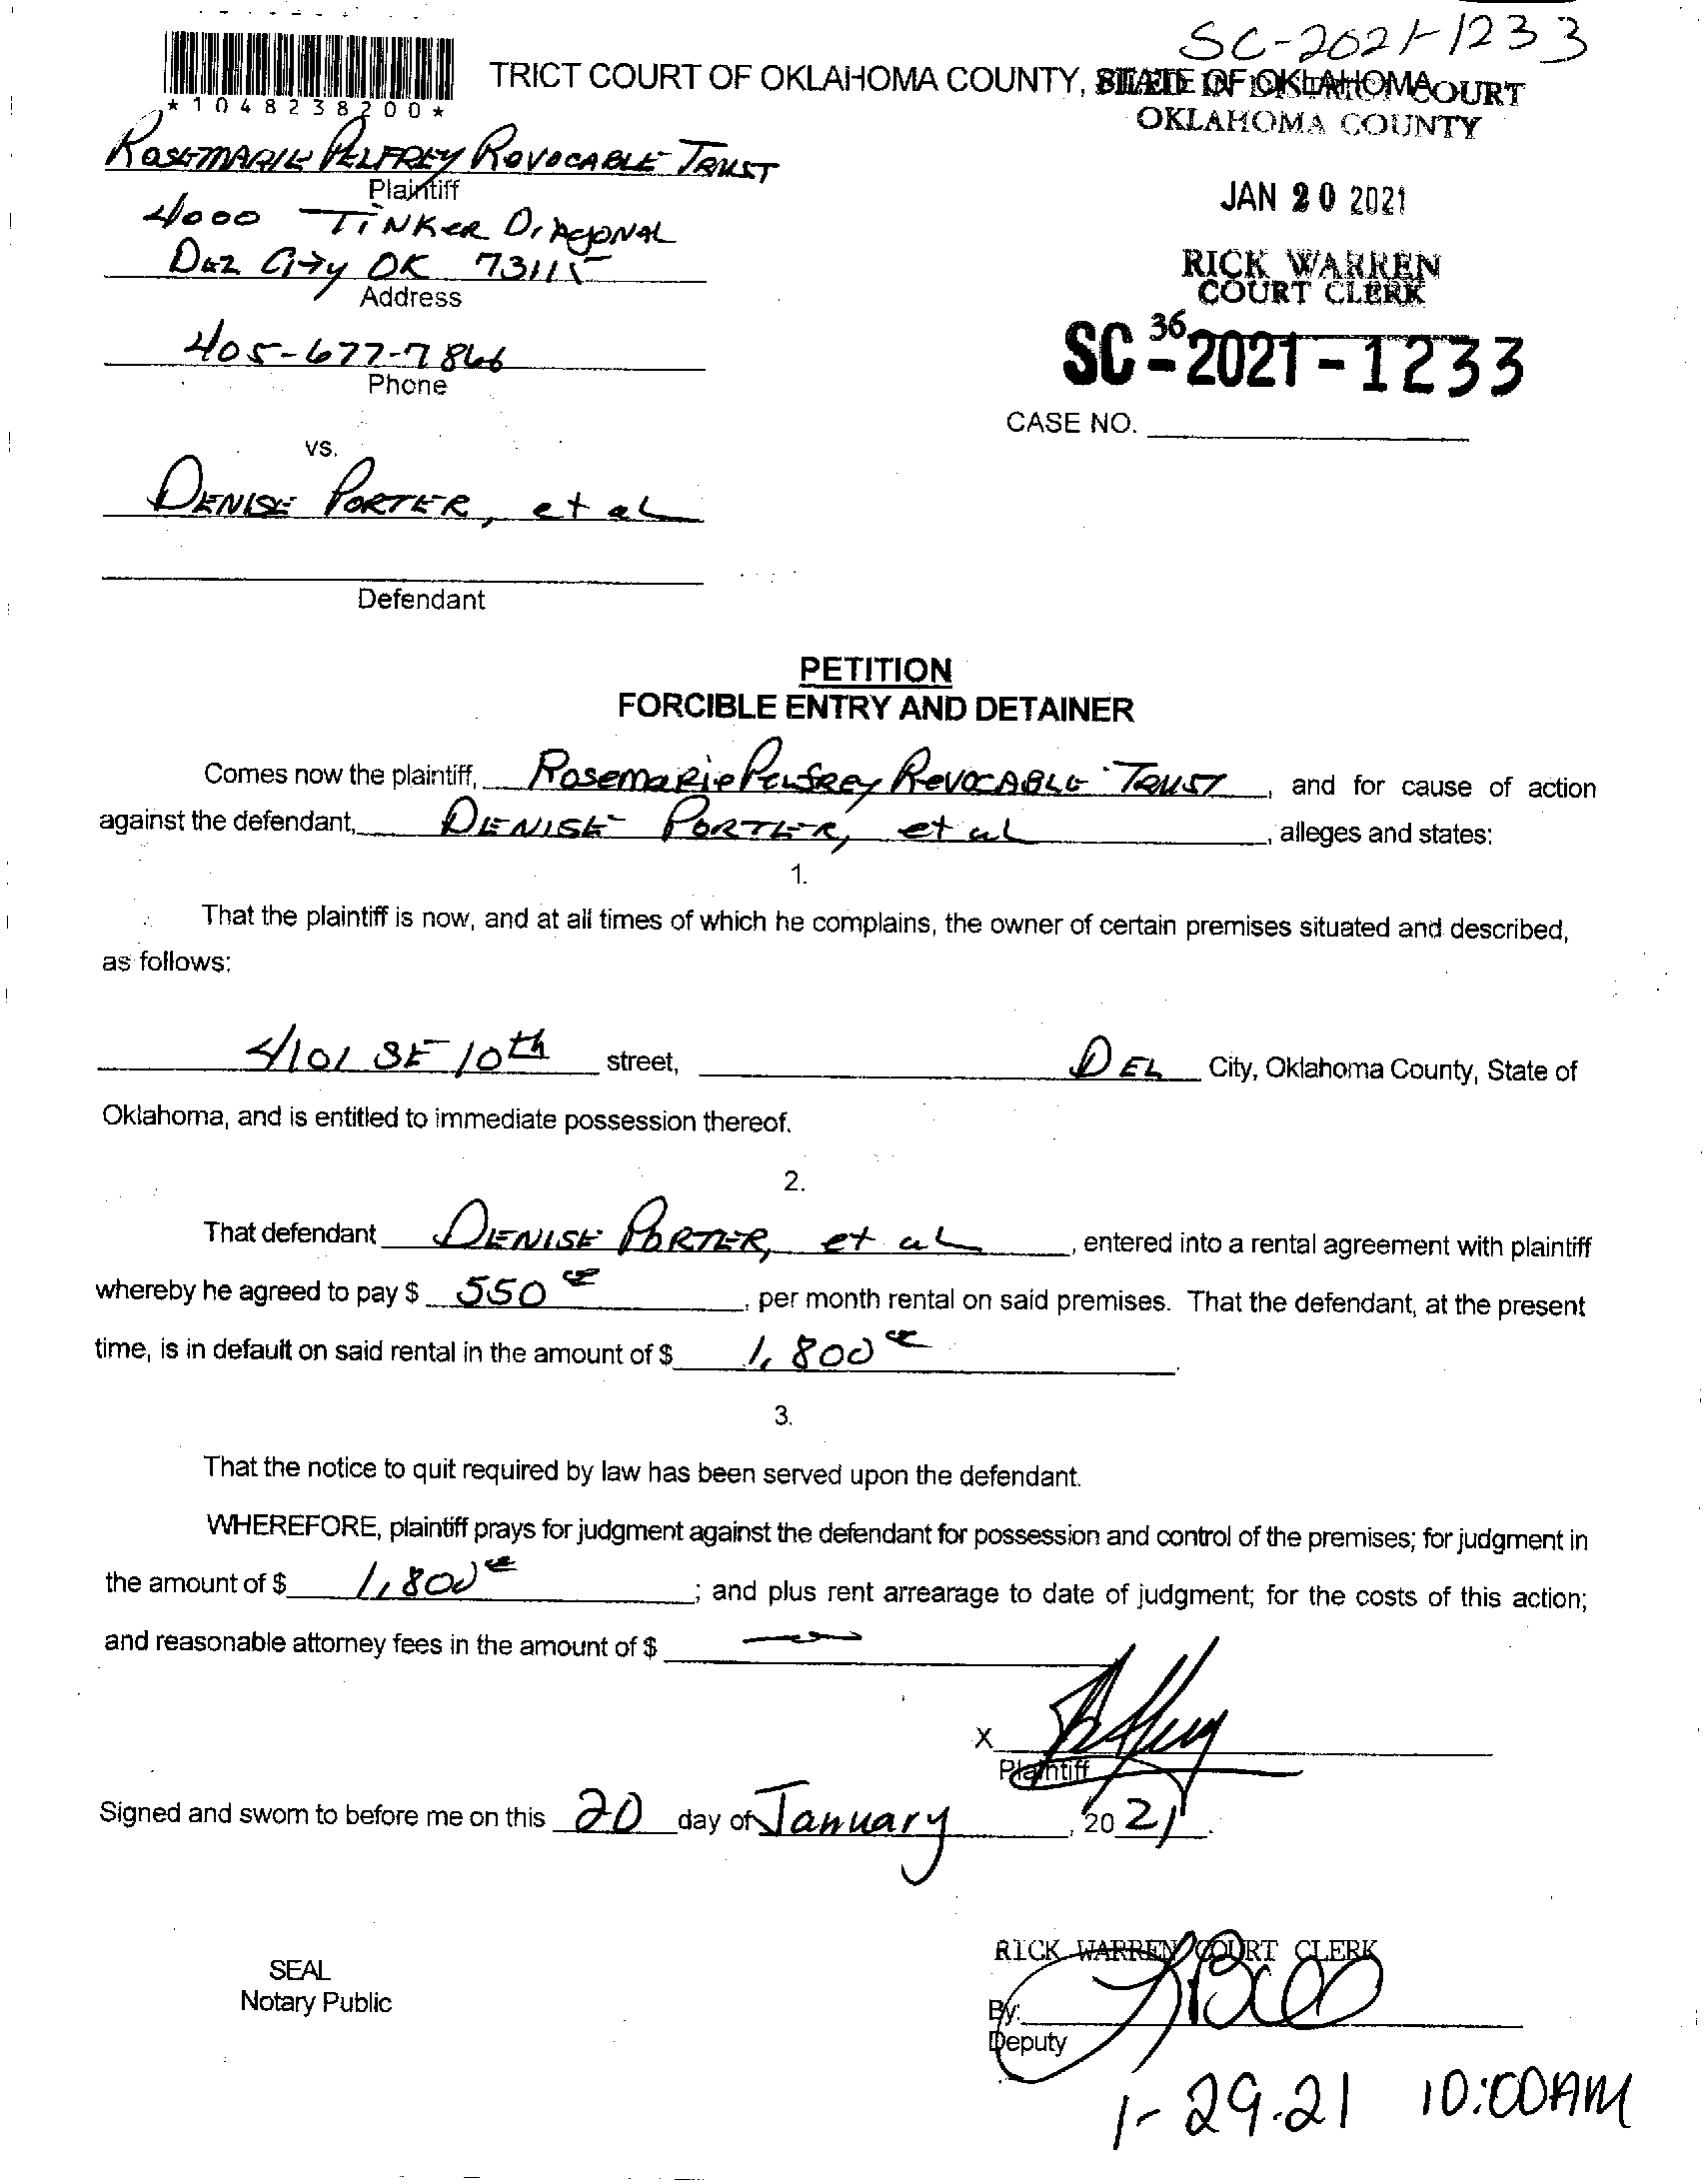 SC-2021-1233
TRICT COURT OF OKLAHOMA COUNTY, STATE OF OKLAHOMA COURT
*1048238200*
OKLAHOMA COUNTY
ROSEMARIE PELFREY REVOCABLE TRUST
Plaintiff
JAN 20 2021
4000 TINKER DIAGONAL
DEL CITY OK 73115
Address
RICK WARREN
COURT CLERK
36
405-677-7866
Phone
SC-2021-1233
CASE NO.
vs.
DENISE PORTER, et al
Defendant
PETITION
FORCIBLE ENTRY AND DETAINER
Comes now the plaintiff, Rosemarie Pelfrey Revocable Trust, and for cause of action
against the defendant, DENISE PORTER, et al, alleges and states:
1.
That the plaintiff is now, and at all times of which he complains, the owner of certain premises situated and described,
as follows:
4101 SE 10th street, DEL City, Oklahoma County, State of
Oklahoma, and is entitled to immediate possession thereof.
2.
That defendant DENISE PORTER, et al, entered into a rental agreement with plaintiff
whereby he agreed to pay $ 550, per month rental on said premises. That the defendant, at the present
time, is in default on said rental in the amount of $ 1,800.
3.
That the notice to quit required by law has been served upon the defendant.
WHEREFORE, plaintiff prays for judgment against the defendant for possession and control of the premises; for judgment in
the amount of $ 1,800; and plus rent arrearage to date of judgment; for the costs of this action;
and reasonable attorney fees in the amount of $
X
Plaintiff
Signed and sworn to before me on this 20 day of January, 2021.
RICK WARREN COURT CLERK
SEAL
Notary Public
By:
Deputy
1-29-21 10:00AM